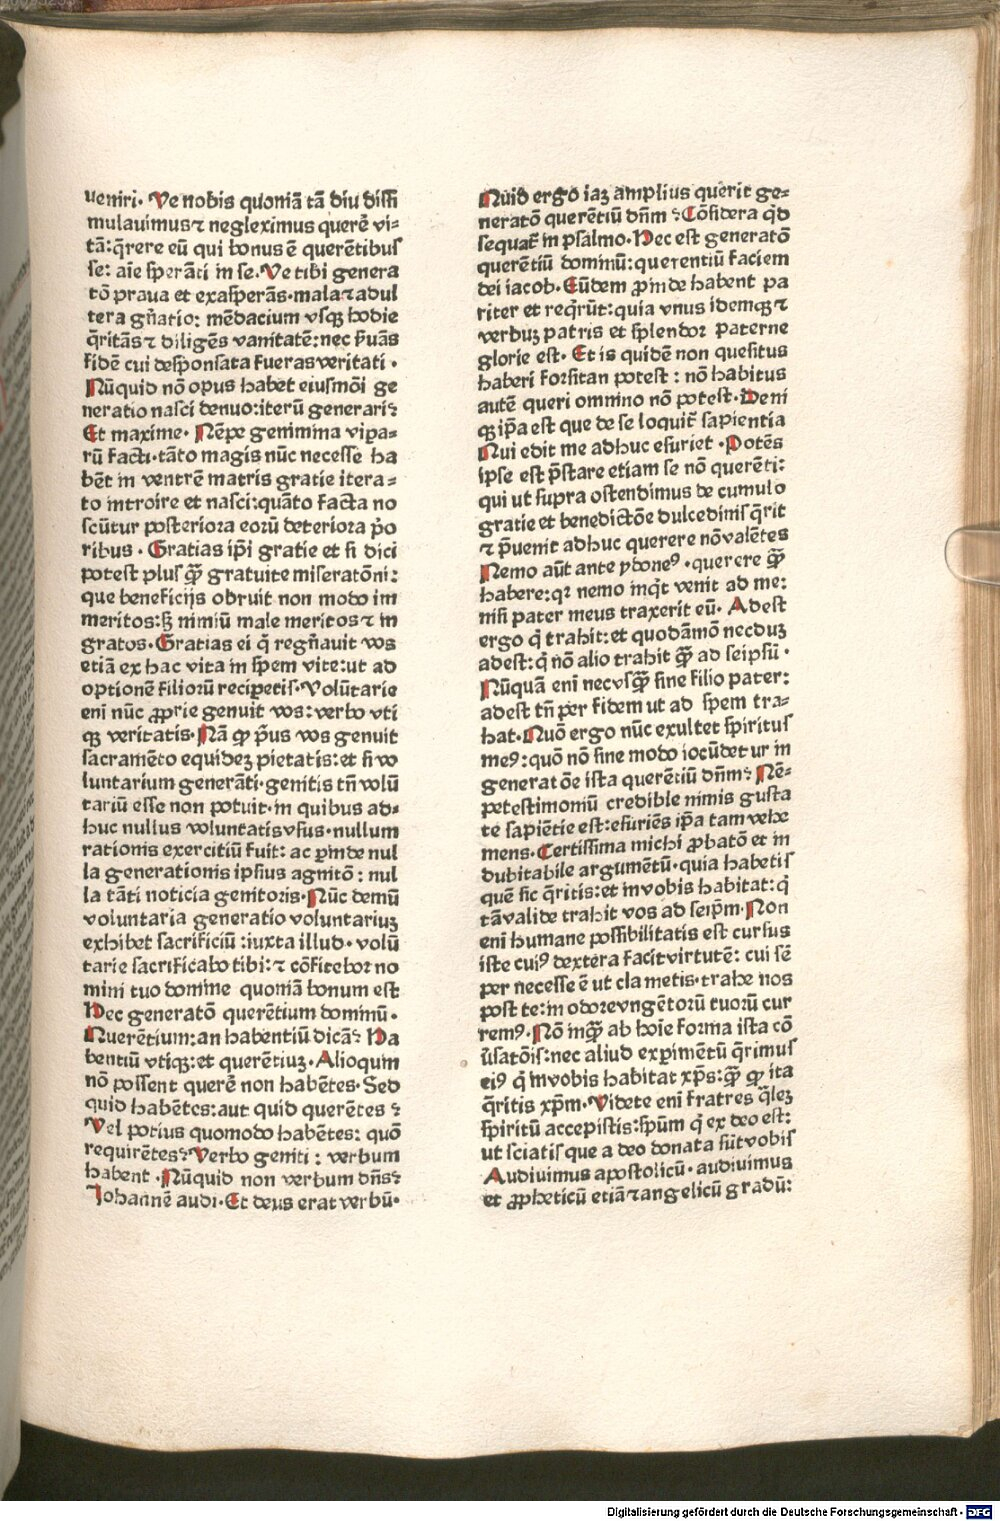 ueniri. Ve nobis quoniā tā diu dissi
mulauimus ⁊ negleximus querē vi-
tā: q̄rere eū qui bonus ē querētibus
se: aīe sperāti in se. Ve tibi genera
tō praua et exasperās. mala ⁊ adul
tera gn̄atio: mēdacium vsqꝫ hodie
q̄ritās ⁊ diligēs vanitatē: nec ẜuās
fidē cui desponsata fueras veritati.
Nūquid nō opus habet eiusmōi ge
neratio nasci denuo: iterū generari?
Et maxime. Nēpe genimina vipa-
rū facti. tāto magis nūc necesse ha
bēt in ventrē matris gratie itera-
to introire et nasci: quāto facta no
scūtur posteriora eorū deteriora p̄o
ribus. Gratias ip̄i gratie et si dici
potest plusꝙ̄ gratuite miseratōni:
que beneficijs obruit non modo im
meritos: sꝫ nimiū male meritos ⁊ in
gratos. Gratias ei q̄ regn̄auit vos
etiā ex hac vita in spem vite: ut ad
optionē filiorū recipetis. Volūtarie
enī nūc ꝓprie genuit vos: verbo vti
qꝫ veritatis. Nā ꝙ p̄us vos genuit
sacramēto equidez pietatis: et si vo
luntarium generāti. genitis tn̄ volū
tariū esse non potuit. in quibus ad-
huc nullus voluntatis vsus. nullum
rationis exercitiū fuit: ac ꝑinde nul
la generationis ipsius agnitō: nul
la tāti noticia genitoris. Nūc demū
voluntaria generatio voluntariuꝫ
exhibet sacrificiū: iuxta illud. volū
tarie sacrificabo tibi: ⁊ cōfitebor no
mini tuo domine quoniā bonum est
Hec generatō querētium dominū.
Querētium: an habentiū dicā? Ha
bentiū vtiqꝫ: et querētiuꝫ. Alioquin
nō possent querē non habētes. Sed
quid habētes: aut quid querētes?
Vel potius quomodo habētes: quō
requirētes? Verbo geniti: verbum
habent. Nūquid non verbum dn̄s?
Johannē audi. Et deus erat verbū.
Quid ergo iaꝫ amplius querit ge-
neratō querētiū dn̄m? Cōsidera q̄d
sequat̄ in psalmo. Hec est generatō
querētiū dominū: querentiū faciem
dei iacob. Eūdem ꝓinde habent pa
riter et req̄rūt: quia vnus idemqꝫ ⁊
verbuꝫ patris et splendor paterne
glorie est. Et is quidē non quesitus
haberi forsitan potest: nō habitus
autē queri omnino nō potest. Deni
qꝫ ip̄a est que de se loquit̄ sapientia
Qui edit me adhuc esuriet. Potēs
ipse est p̄stare etiam se nō querēti:
qui ut supra ostendimus de cumulo
gratie et benedictōe dulcedinis q̄rit
⁊ p̄uenit adhuc querere nō valētes
Nemo aūt ante ydoneꝰ. querere ꝙ̄
habere: qꝛ nemo inq̄t venit ad me:
nisi pater meus traxerit eū. Adest
ergo q̄ trahit: et quodāmō necduꝫ
adest: q̄ nō alio trahit ꝙ̄ ad seipsū.
Nūquā enī necvsꝙ̄ sine filio pater:
adest tn̄ per fidem ut ad spem tra-
hat. Quō ergo nūc exultet spiritus
meꝰ: quō nō sine modo iocūdetur in
generatōe ista querētiū dn̄m? Nē-
pe testimoniū credible nimis gusta
te sapiētie est: esuriēs ip̄a tam vehe
mens. Certissima michi ꝓbatō et in
dubitabile argumētū. quia habetis
quē sic q̄ritis: et in vobis habitat: q̄
tā valide trahit vos ad seip̄m. Non
enī humane possibilitatis est cursus
iste cuiꝰ dextera facit virtutē: cui sē
per necesse ē ut clametis. trahe nos
post te: in odore vngētorū tuorū cur
remꝰ. Nō inꝙ̄ ab hoīe forma ista cō
ūsatōis: nec aliud expimētū q̄rimus
eiꝰ q̄ in vobis habitat xp̄s: ꝙ̄ ꝙ ita
q̄ritis xp̄m. Videte enī fratres q̄leꝫ
spiritū accepistis: sp̄um q̄ ex deo est:
ut sciatis que a deo donata sūt vobis
Audiuimus apostolicū. audiuimus
et ꝓpheticū etiā ⁊ angelicū gradū:
Digitalisierung gefördert durch die Deutsche Forschungsgemeinschaft - DFG